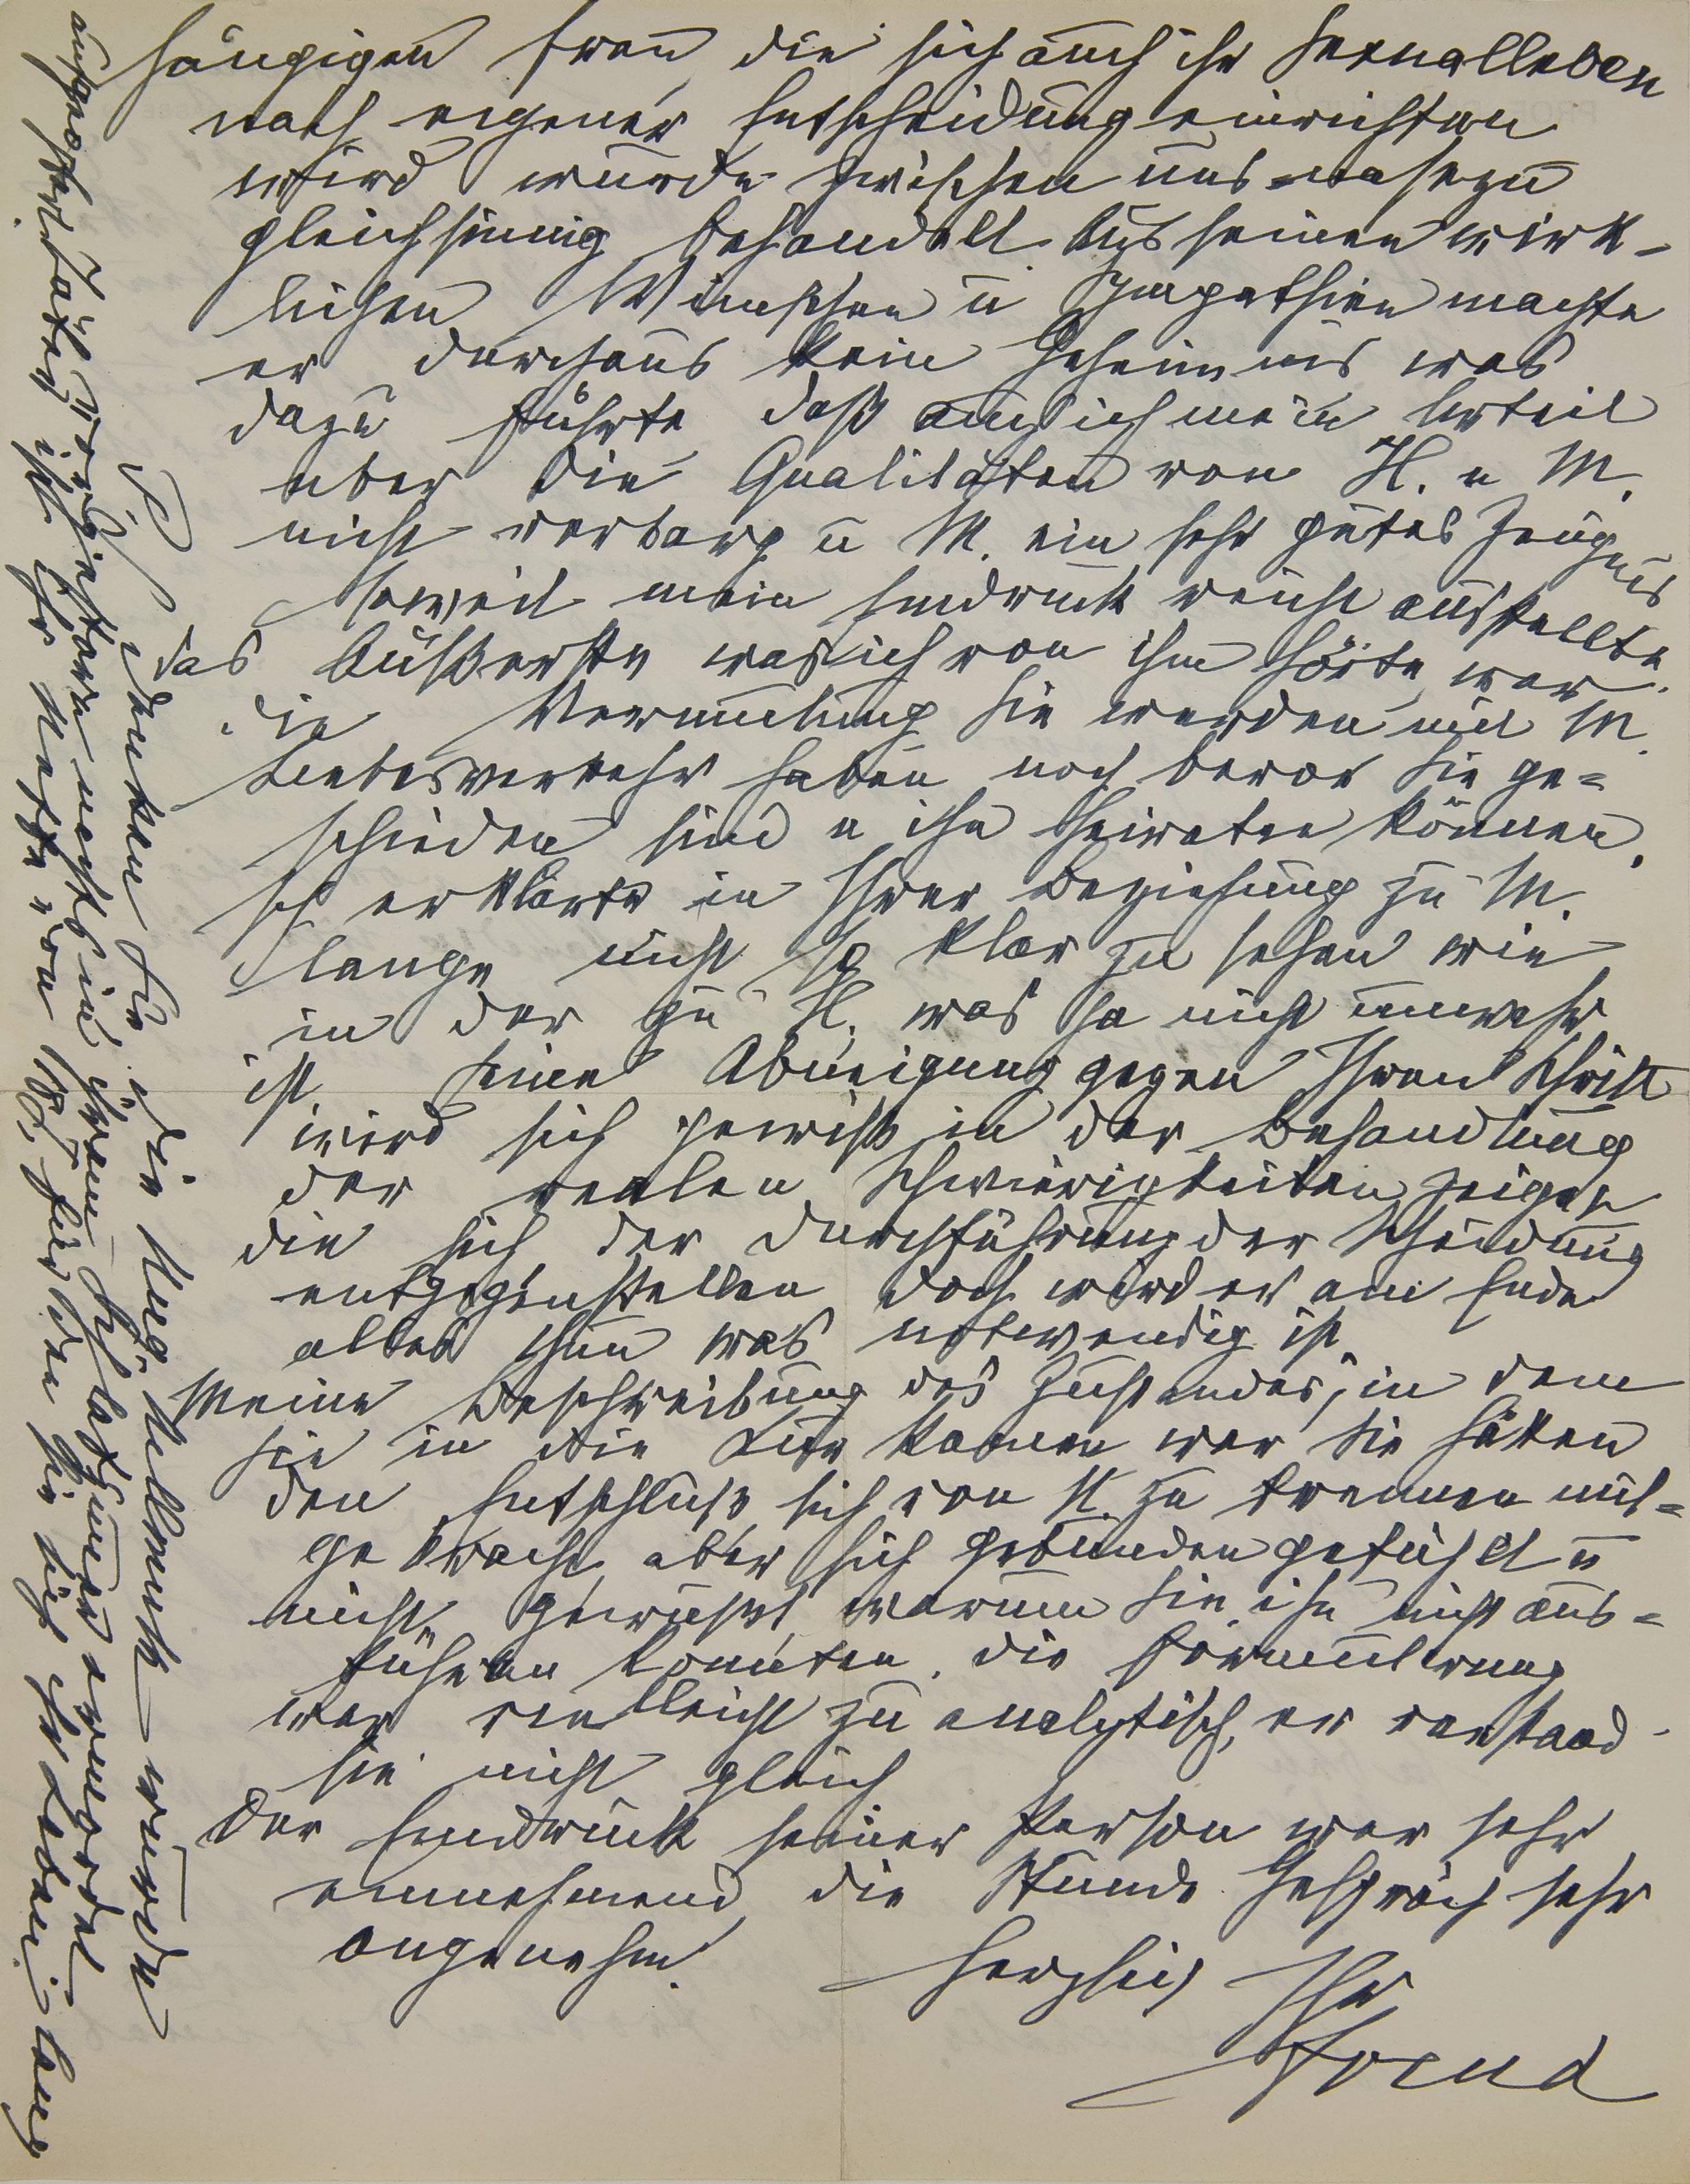 hängigen Frau die sich auch ihr Sexualleben
nach eigener Entscheidung einrichten
wird wurde zwischen uns nahezu
gleichsinnig behandelt. Aus seinen wirk-
lichen Wünschen u Sympathien machte
er durchaus kein Geheimnis was
dazu führte daß auch ich mein Urteil
über die Qualitäten von H. u M.
nicht verbarg u M. ein sehr gutes Zeugnis
soweit mein Eindruck reicht ausstellte.
Das Äußerste was ich von ihm hörte, war
die Vermutung Sie werden mit M.
Liebesverkehr haben noch bevor Sie ge-
schieden sind u ihn heiraten können.
Ich erklärte in Ihrer Beziehung zu M.
lange nicht so klar zu sehen wie
in der zu H. was ja nicht unwahr
ist. Seine Abneigung gegen Ihren Schritt
wird sich gewiß in der Behandlung
der realen Schwierigkeiten zeigen
die sich der Durchführung der Scheidung
entgegenstellen doch wird er am Ende
alles thun was notwendig ist.
Meine Beschreibung des Zustandes, in dem
Sie in die Kur kamen war Sie hätten
den Entschluß sich von H. zu trennen mit-
gebracht, aber sich gebunden gefühlt u
nicht gewußt warum Sie ihn nicht aus-
führen konnten. Die Formulierung
war vielleicht zu analytisch, er verstand
sie nicht gleich
Der Eindruck seiner Person war sehr
einnehmend, die Stunde Gespräch sehr
angenehm.
Herzlich Ihr
Freud
P.S. Gedanken für die Aug. würde
nachts in ihrem Schlafzimmer ermordet
ist Ihr Neffe von 18, für den sie sich ihr Leben lang